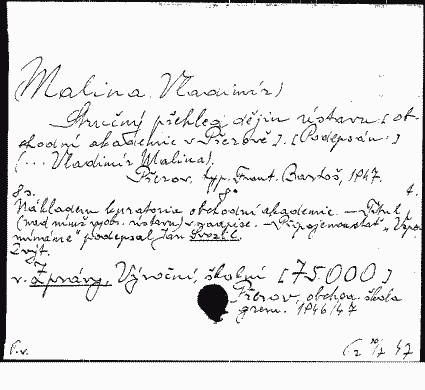 Malina, Vladimír)
Stručný přehled dějin ústavu [ob-
chodní akademie v Přerově]. [Podepsán:]
(... Vladimír Malina).
Přerov, typ. Frant. Bartoš, 1947.
8s. 8° 4.
Nákladem kuratoria obchodní akademie. — Titul
(nad nímž vyobr. ústavu) v záhlaví. — Připojenou stať „Vzpo-
mínáme" podepsal Jan
Zvýt.
v. Zprávy, Výroční, školní [75000]
Přerov, obchod. škola
grem. 1946/47
P.v. 47